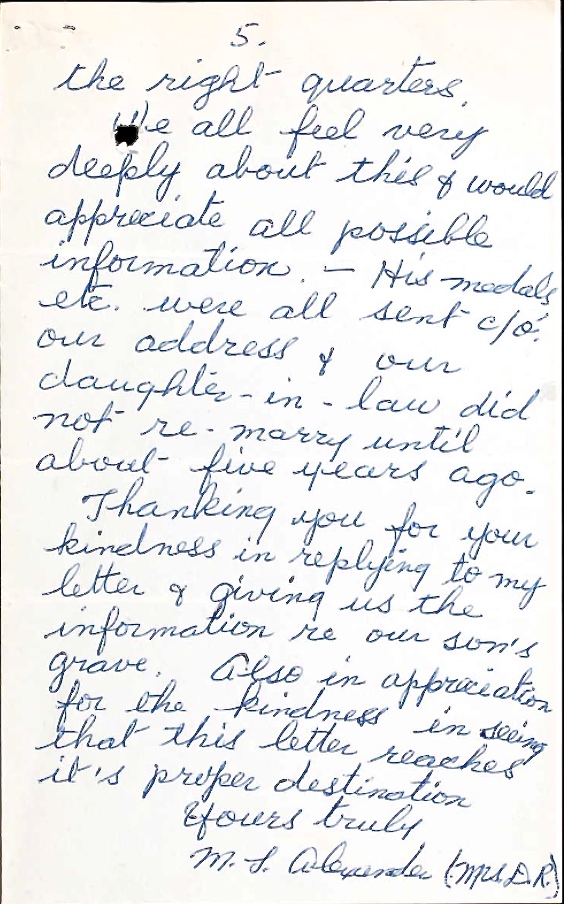 5.
the right quarters.
We all feel very
deeply about this & would
appreciate all possible
information. — His medals
etc. were all sent c/o.
our address & our
daughter-in-law did
not re-marry until
about five years ago.
Thanking you for your
kindness in replying to my
letter & giving us the
information re our son's
grave. Also in appreciation
for the kindness in seeing
that this letter reaches
it's proper destination
Yours truly
M. L. Alexander (Mrs. D.R.)